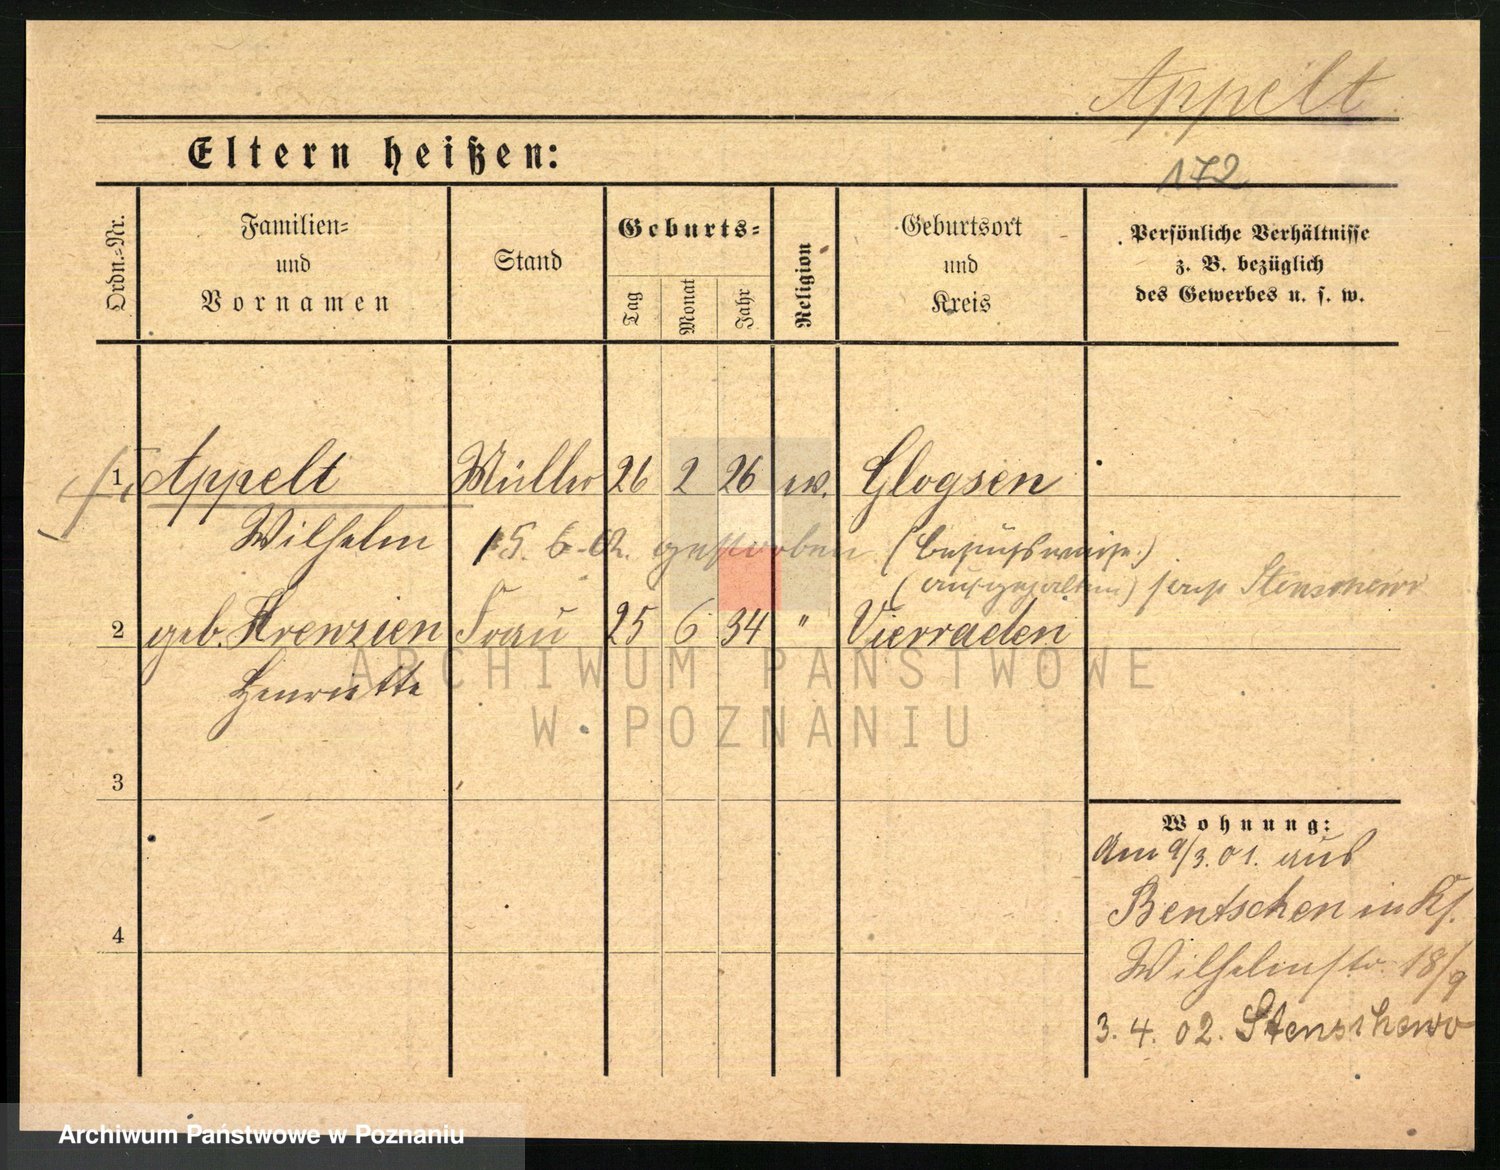 Appelt
Eltern heißen:
172
Ordn.-Nr.
Familien- und Vornamen
Stand
Geburts-
Tag
Monat
Jahr
Religion
Geburtsort und Kreis
Persönliche Verhältnisse
z. B. bezüglich
des Gewerbes u. s. w.
1 Appelt Müller 26 2 26 ev. Glogsen
Wilhelm 15. 6. 02. gestorben (besuchsweise.)
(aufgehalten) Stenschewo
2 geb. Krenzien Frau 25 6 34 " Vierraden
Henriette
ARCHIWUM PAŃSTWOWE
W POZNANIU
3
4
Wohnung:
Am 9/3. 01. aus
Bentschen in
Wilhelmstr. 18/9
3. 4. 02. Stenschewo
Archiwum Państwowe w Poznaniu